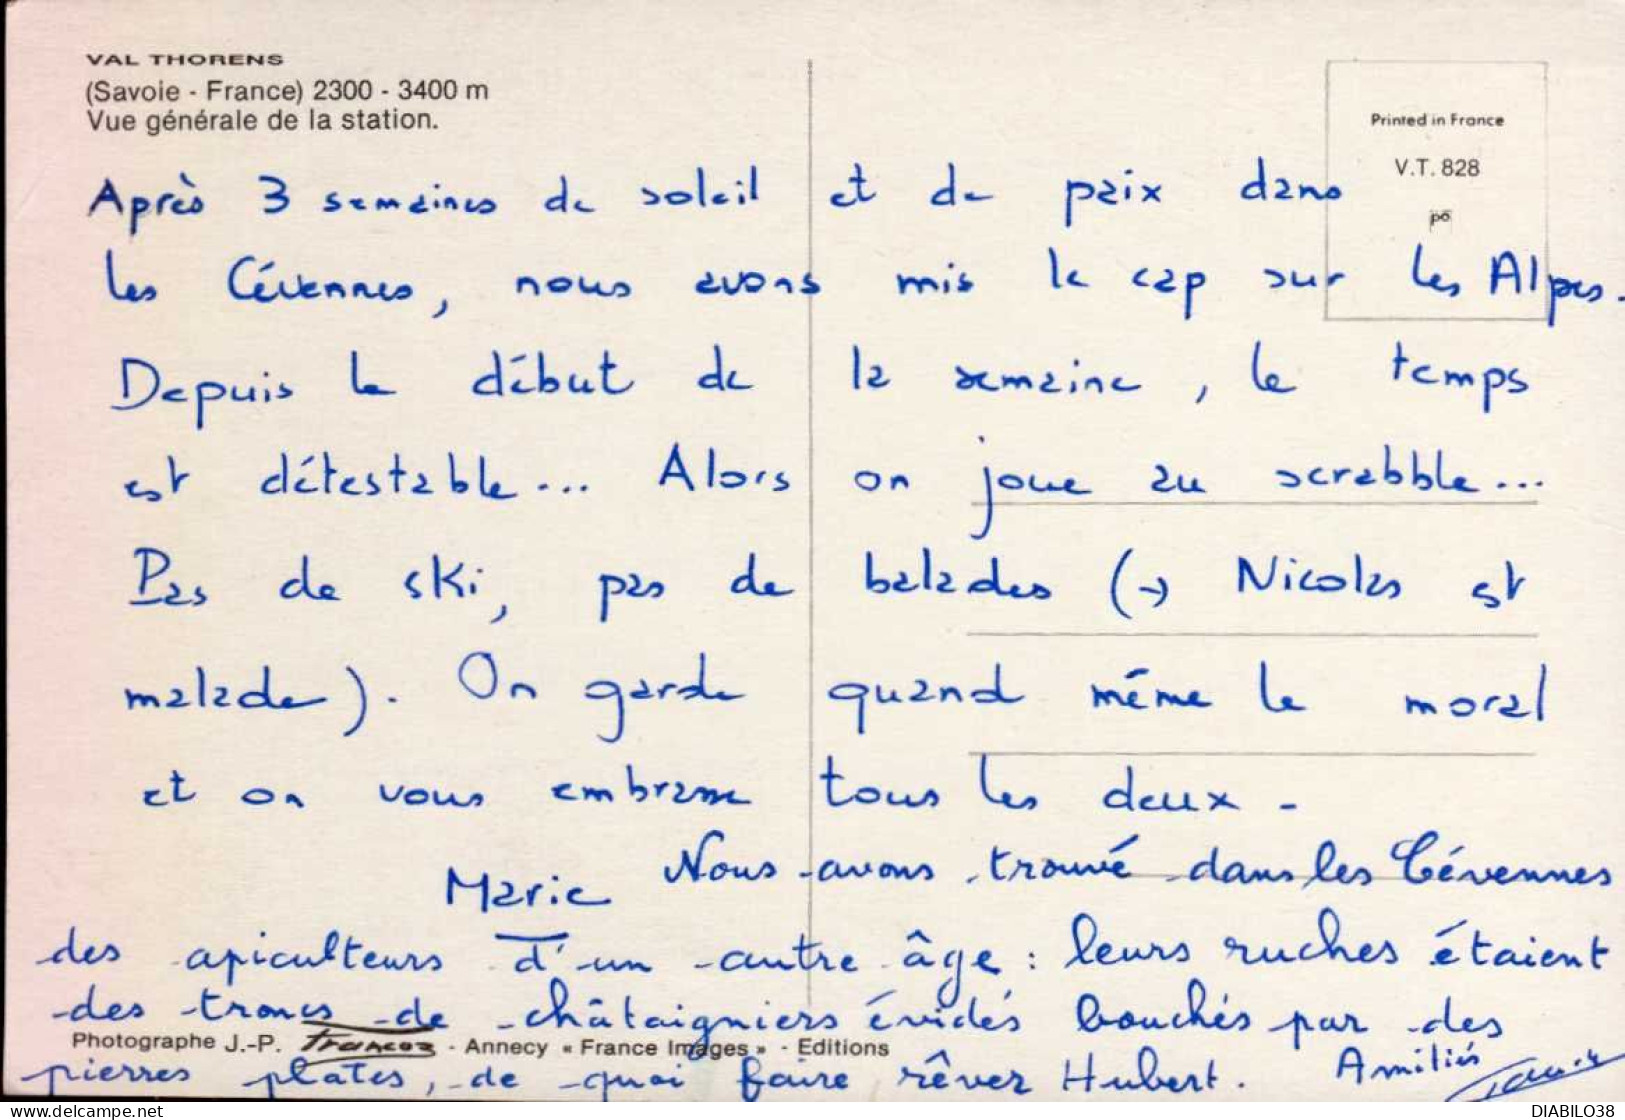 VAL THORENS
(Savoie - France) 2300 - 3400 m
Vue générale de la station.
Printed in France
V.T. 828
Après 3 semaines de soleil et de paix dans
les Cévennes, nous avons mis le cap sur les Alpes.
Depuis le début de la semaine, le temps
est détestable... Alors on joue au scrabble...
Pas de ski, pas de balades (→ Nicolas est
malade). On garde quand même le moral
et on vous embrasse tous les deux -
Marie
Nous avons trouvé dans les Cévennes
des apiculteurs d'un autre âge : leurs ruches étaient
des troncs de châtaigniers évidés bouchés par des
Photographe J.-P. - Annecy « France Images » - Editions
pierres plates, de quoi faire rêver Hubert. Amitiés
DIABILO38